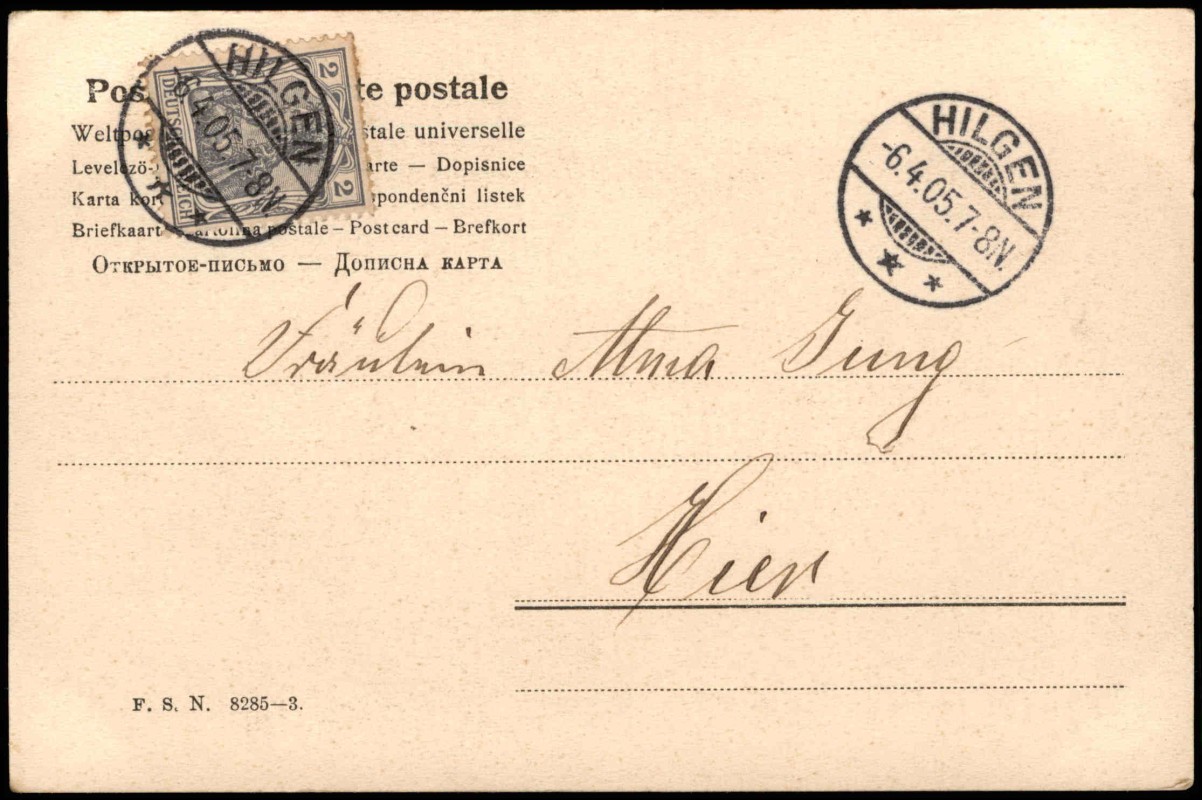 Pos te postale
Weltpos stale universelle
Levelező- arte — Dopisnice
Karta kor spondenční listek
Briefkaart – Cartolina postale – Post card – Brefkort
Открытое-письмо — Дописна карта
2 2
DEUTSCHES REICH
HILGEN
-6.4.05.7-8N.
HILGEN
-6.4.05.7-8N.
Fräulein Alma Jung
Hier
F. S. N. 8285—3.